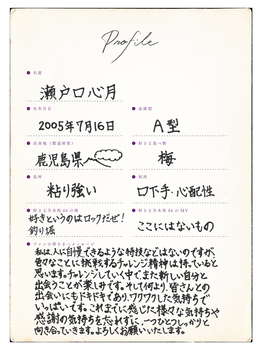 Profile
名前
瀬戸口心月
生年月日
2005年7月16日
血液型
A型
出身地（都道府県）
鹿児島県
好きな食べ物
梅
長所
粘り強い
短所
口下手・心配性
好きな乃木坂46の曲
好きというのはロックだぜ!
釣り堀
好きな乃木坂46のMV
ここにはないもの
ファンの皆さまへメッセージ
私は人に自慢できるような特技などはないのですが、
色々なことに挑戦するチャレンジ精神は持っていると
思います。チャレンジしていく中で、また新しい自分と
出会うことが楽しみです。そして何より、皆さんとの
出会いにもドキドキであり、ワクワクした気持ちで
いっぱいです。これまでに感じた様々な気持ちや
感謝の気持ちを忘れずに、一つひとつしっかりと
向き合っていきます。よろしくお願いいたします。